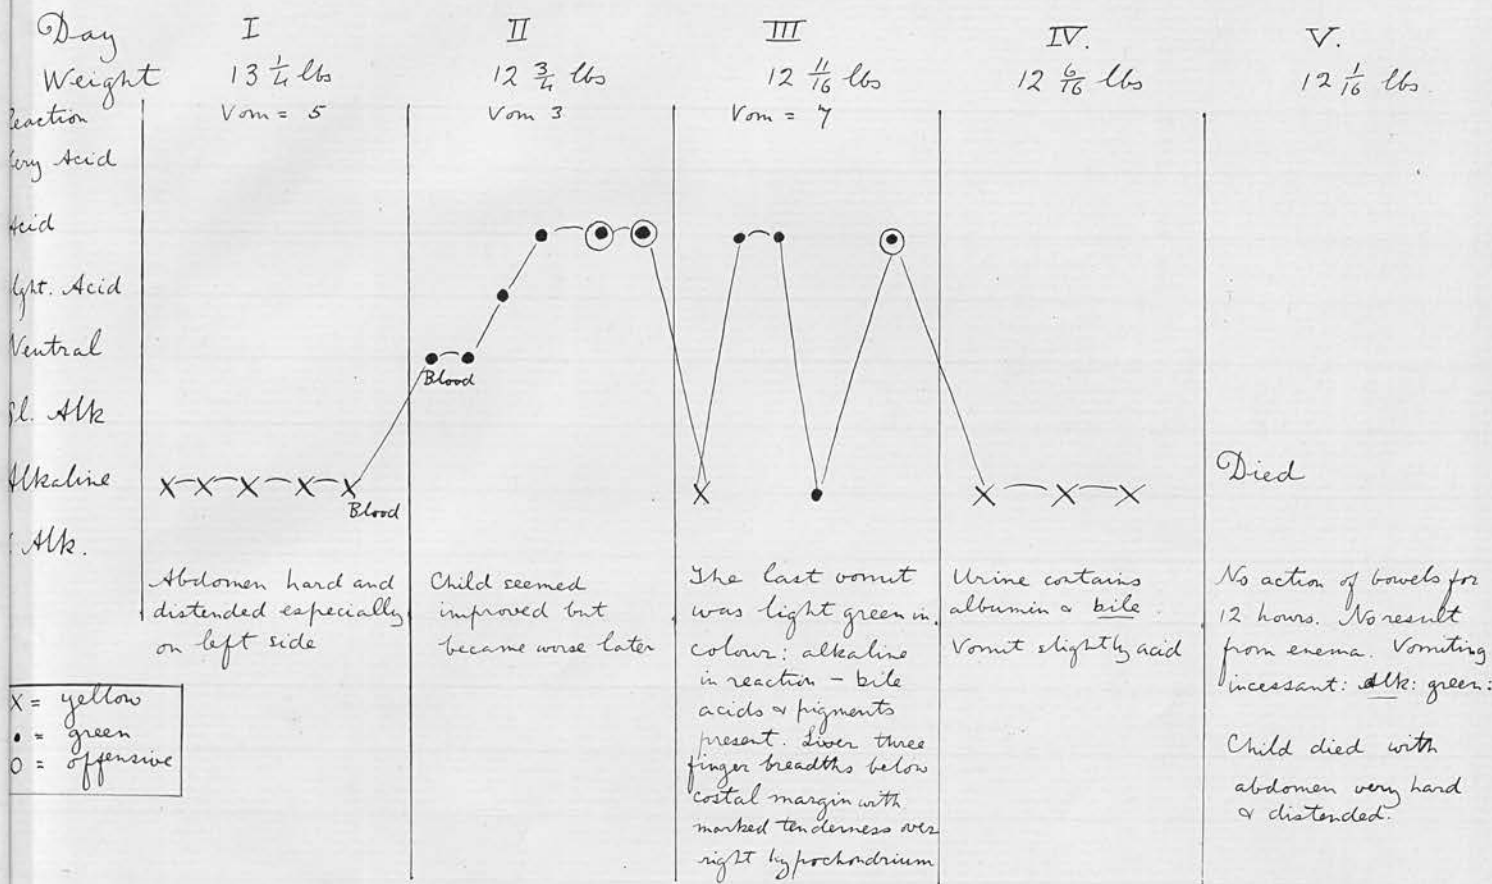 Day I II III IV. V.
Weight 13 1/4 lbs 12 3/4 lbs 12 11/16 lbs 12 6/16 lbs 12 1/16 lbs.
eaction Vom = 5 Vom 3 Vom = 7
ery Acid
cid
ght. Acid
Neutral
Blood
Sl. Alk
Alkaline X X X X X X X X X
Blood
Died
Alk.
Abdomen hard and
distended especially
on left side
Child seemed
improved but
became worse later
The last vomit
was light green in
colour: alkaline
in reaction - bile
acids & pigments
present. Liver three
finger breadths below
costal margin with
marked tenderness over
right hypochondrium
Urine contains
albumin & bile.
Vomit slightly acid
No action of bowels for
12 hours. No result
from enema. Vomiting
incessant: Alk: green:
Child died with
abdomen very hard
& distended.
X = yellow
• = green
O = offensive